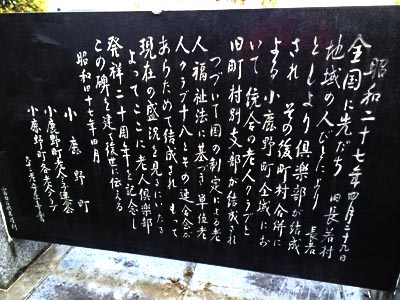 昭和二十七年四月二十九日
全国に先だち 旧長若村
地域の人びとにより 長若
としより倶楽部が結成
され その後町村合併に
よる小鹿野町全域にお
いて統合の老人クラブと
旧町村別支部が結成され
つづいて国の制定による老
人福祉法に基づき単位老
人クラブ十八とその連合会が
あらためて結成され もって
現在の盛況を見るにいたる
よってここに老人倶楽部
発祥二十周年を記念し
この碑を建て後世に伝える
昭和四十七年四月
小鹿野町
小鹿野町老人クラブ連合会
小鹿野町各老人クラブ